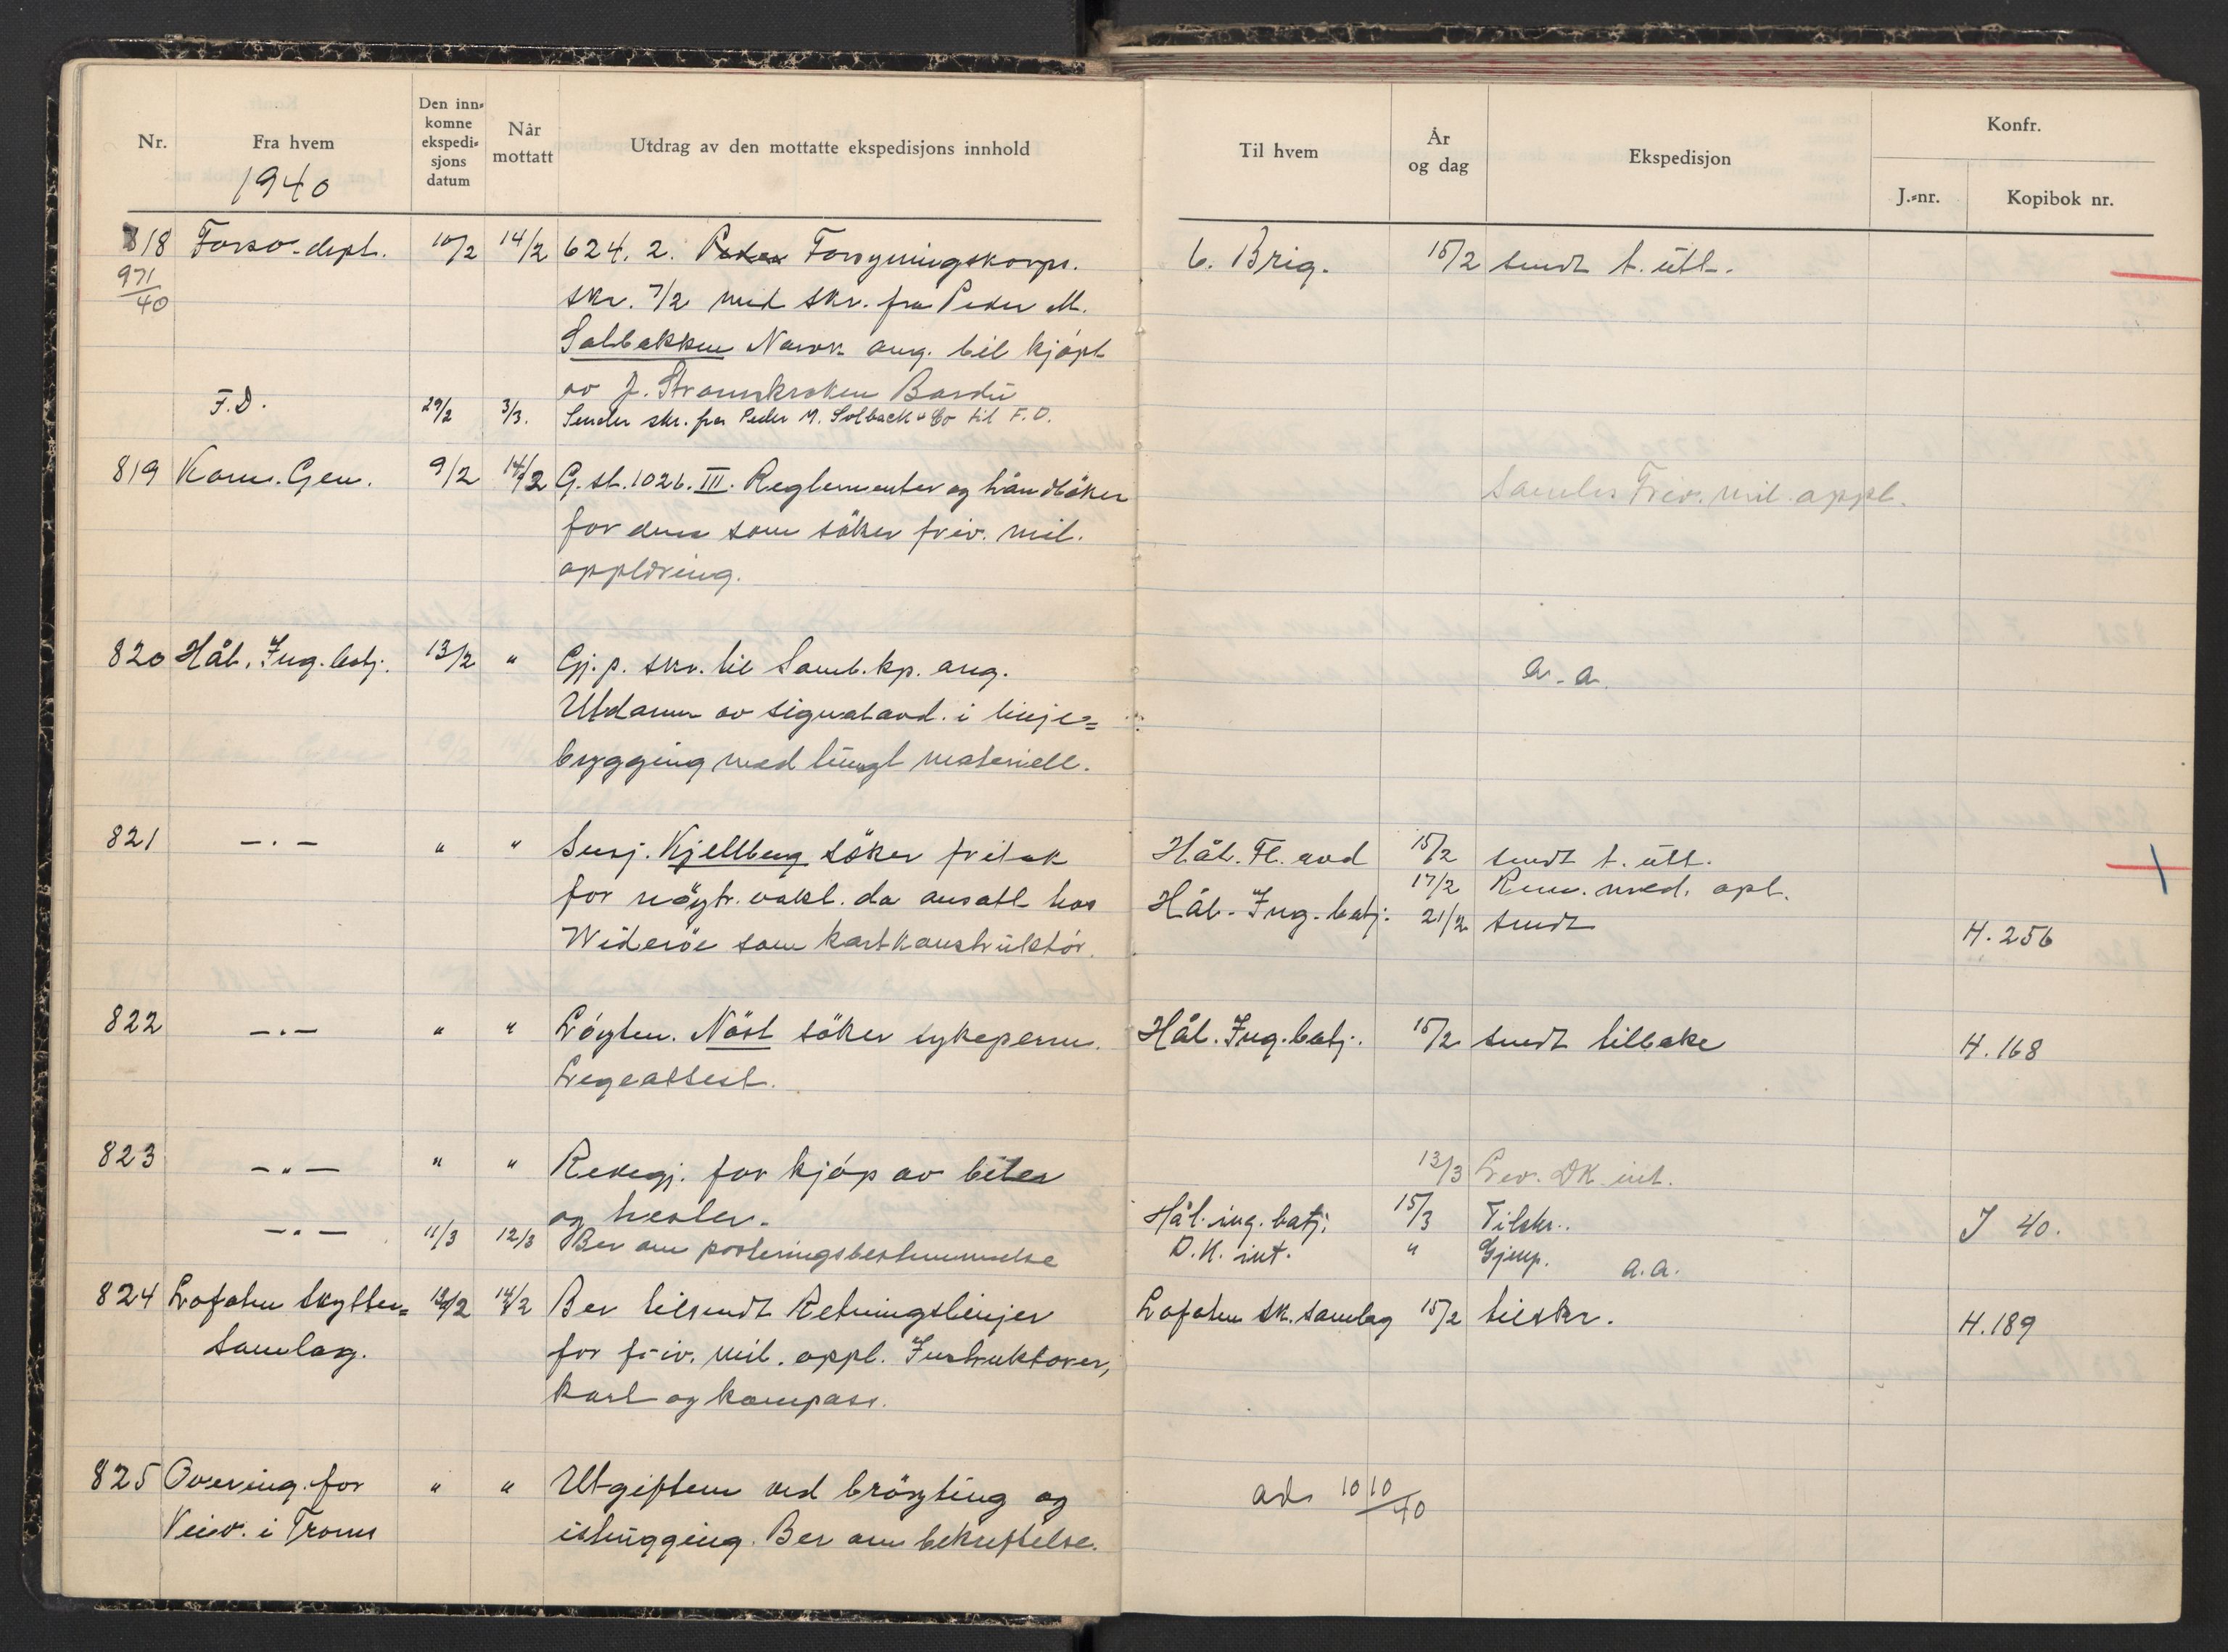 Nr. Fra hvem Den inn- komne ekspedi- sjons datum Når mottatt Utdrag av den mottatte ekspedisjons innhold Til hvem År og dag Ekspedisjon Konfr. J.-nr. Kopibok nr.
1940
818 Forsv. dept. 10/2 14/2 624. 2. Forsyningskorps. 6. Brig. 15/2 sendt t. utt.
971/40 skr. 7/2 med skr. fra Peder M.
Solbakken Narvik ang. bil kjøpt
av J. Strømskroken Bardu
F.D. 29/2 3/3. Sender skr. fra Peder M. Solback & Co til F.D.
819 Kom. Gen. 9/2 14/2 G. st. 1026. III. Reglementer og håndbøker Samles Friv. mil. oppl.
for dem som søker friv. mil.
opplæring.
820 Hål. Ing. batj. 13/2 " Gj. p. skr. til Samb. kp. ang. a. a.
Utdann av signalavd. i linje=
bygging med tungt materiell.
821 — . — " " Sersj. Kjellberg søker fritak Hål. Fl. avd 15/2 sendt t. utt.
17/2 med. opl.
for nøytr. vakt. da ansatt hos Hål. Ing. batj. 21/2 sendt H. 256
Widerøe som kartkonstruktør.
822 — . — " " Løytn. Nöst søker sykeperm. Hål. Ing. batj. 15/2 sendt tilbake H. 168
Legeattest.
823 — " — " " Redegj. for kjøp av biler 13/3 Lev. DK int.
og hester. Hål. ing. batj. 15/3 Tilskr. J 40.
— " — 11/3 12/3 Ber om posteringsbestemmelse D.K. int. " Gjenp. a.a.
824 Lofoten Skytter= 12/2 14/2 Ber tilsendt Retningslinjer Lofoten sk. samlag 15/2 tilskr. H. 189
samlag. for friv. mil. oppl. Instruktører,
kart og kompass.
825 Overing. for " " Utgiftene ved brøyting og ad. 1010/40
Veiv. i Troms ishugging. Ber om bekreftelse.